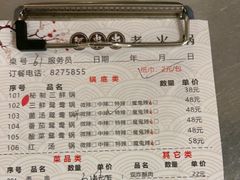 老火锅
桌号 61 服务员 日期 年 月 日
订餐电话: 8275855 纸巾: 2元/包
锅底类
序号 品名 数量 单价
101 秘制三鲜锅 38元
102 三鲜鸳鸯锅 微辣 中辣 特辣 魔鬼辣 48元
103 菌汤鸳鸯锅 微辣 中辣 特辣 魔鬼辣 48元
104 番茄鸳鸯锅 微辣 中辣 特辣 魔鬼辣 48元
105 红汤锅 微辣 中辣 特辣 魔鬼辣 58元
菜品类 其它类
序号 品名 数量 单价 品名 数量 单价
22元